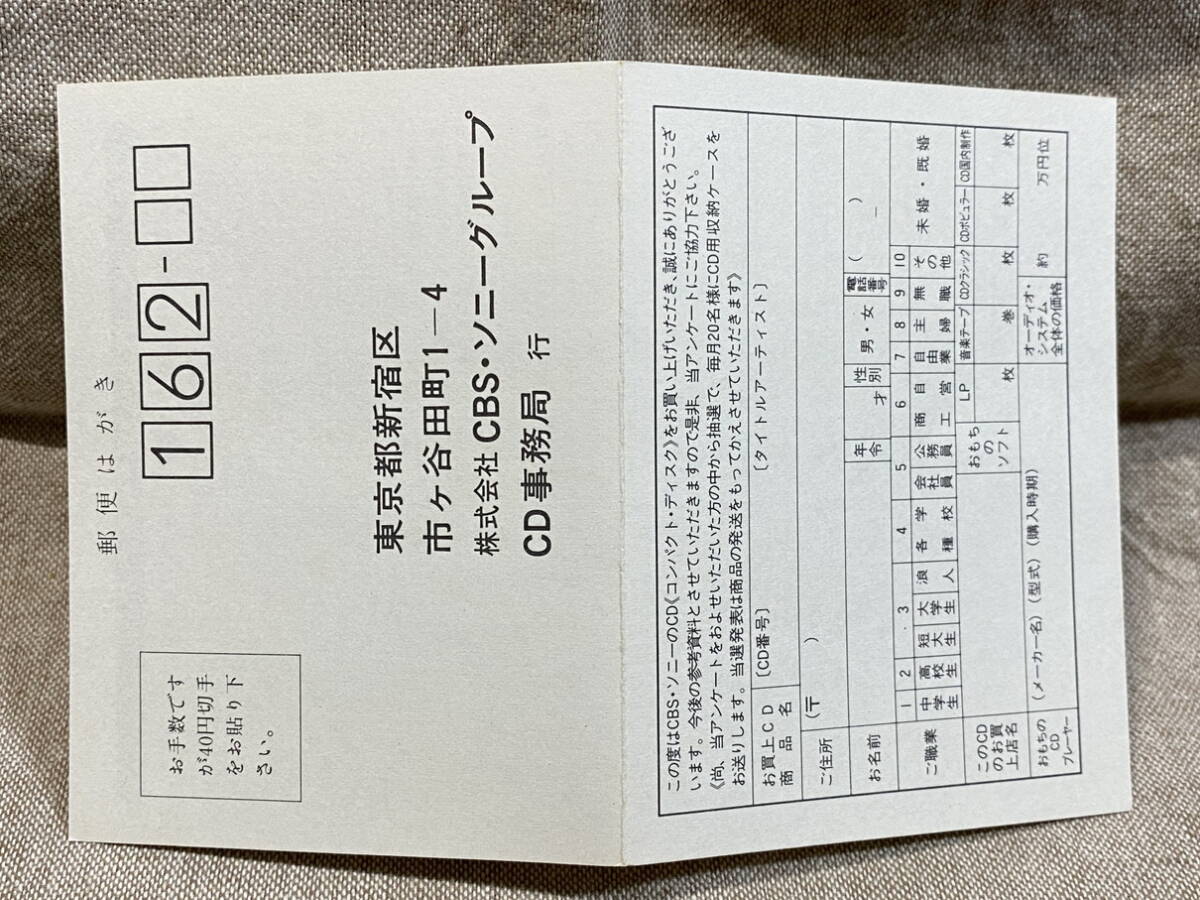 郵便はがき
162-
東京都新宿区
市ヶ谷田町1-4
株式会社CBS・ソニーグループ
CD事務局 行
お手数です
が40円切手
をお貼り下
さい。
この度はCBS・ソニーのCD《コンパクト・ディスク》をお買い上げいただき、誠にありがとうござ
います。今後の参考資料とさせていただきますので是非、当アンケートにご協力下さい。
《尚、当アンケートをおよせいただいた方の中から抽選で、毎月20名様にCD用収納ケースを
お送りします。当選発表は商品の発送をもってかえさせていただきます》
お買上CD
商品名
〔CD番号〕
〔タイトルアーティスト〕
ご住所
(〒 )
お名前
年令
才
性別
男・女
電話番号
( ) －
ご職業
1 中学生
2 高校生
短大生
3 大学生
浪人
4 各種学校
5 会社員
公務員
6 商工自営
7 自由業
8 主婦
9 無職
10 その他
未婚・既婚
このCD
のお買
上店名
おもち
の
ソフト
LP
枚
音楽テープ
巻
CDクラシック
枚
CDポピュラー
枚
CD国内制作
枚
おもちの
CD
プレーヤー
(メーカー名) (型式) (購入時期)
オーディオ・
システム
全体の価格
約 万円位